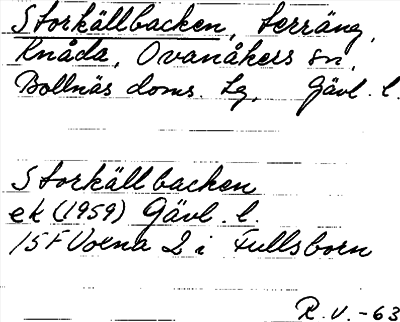 Storkällbacken, terräng,
Knåda, Ovanåkers sn,
Bollnäs doms. lg, Gävl. l.
Storkällbacken
ek (1959) Gävl. l.
15F Voxna 2 i Fullsborn
R.V. -63